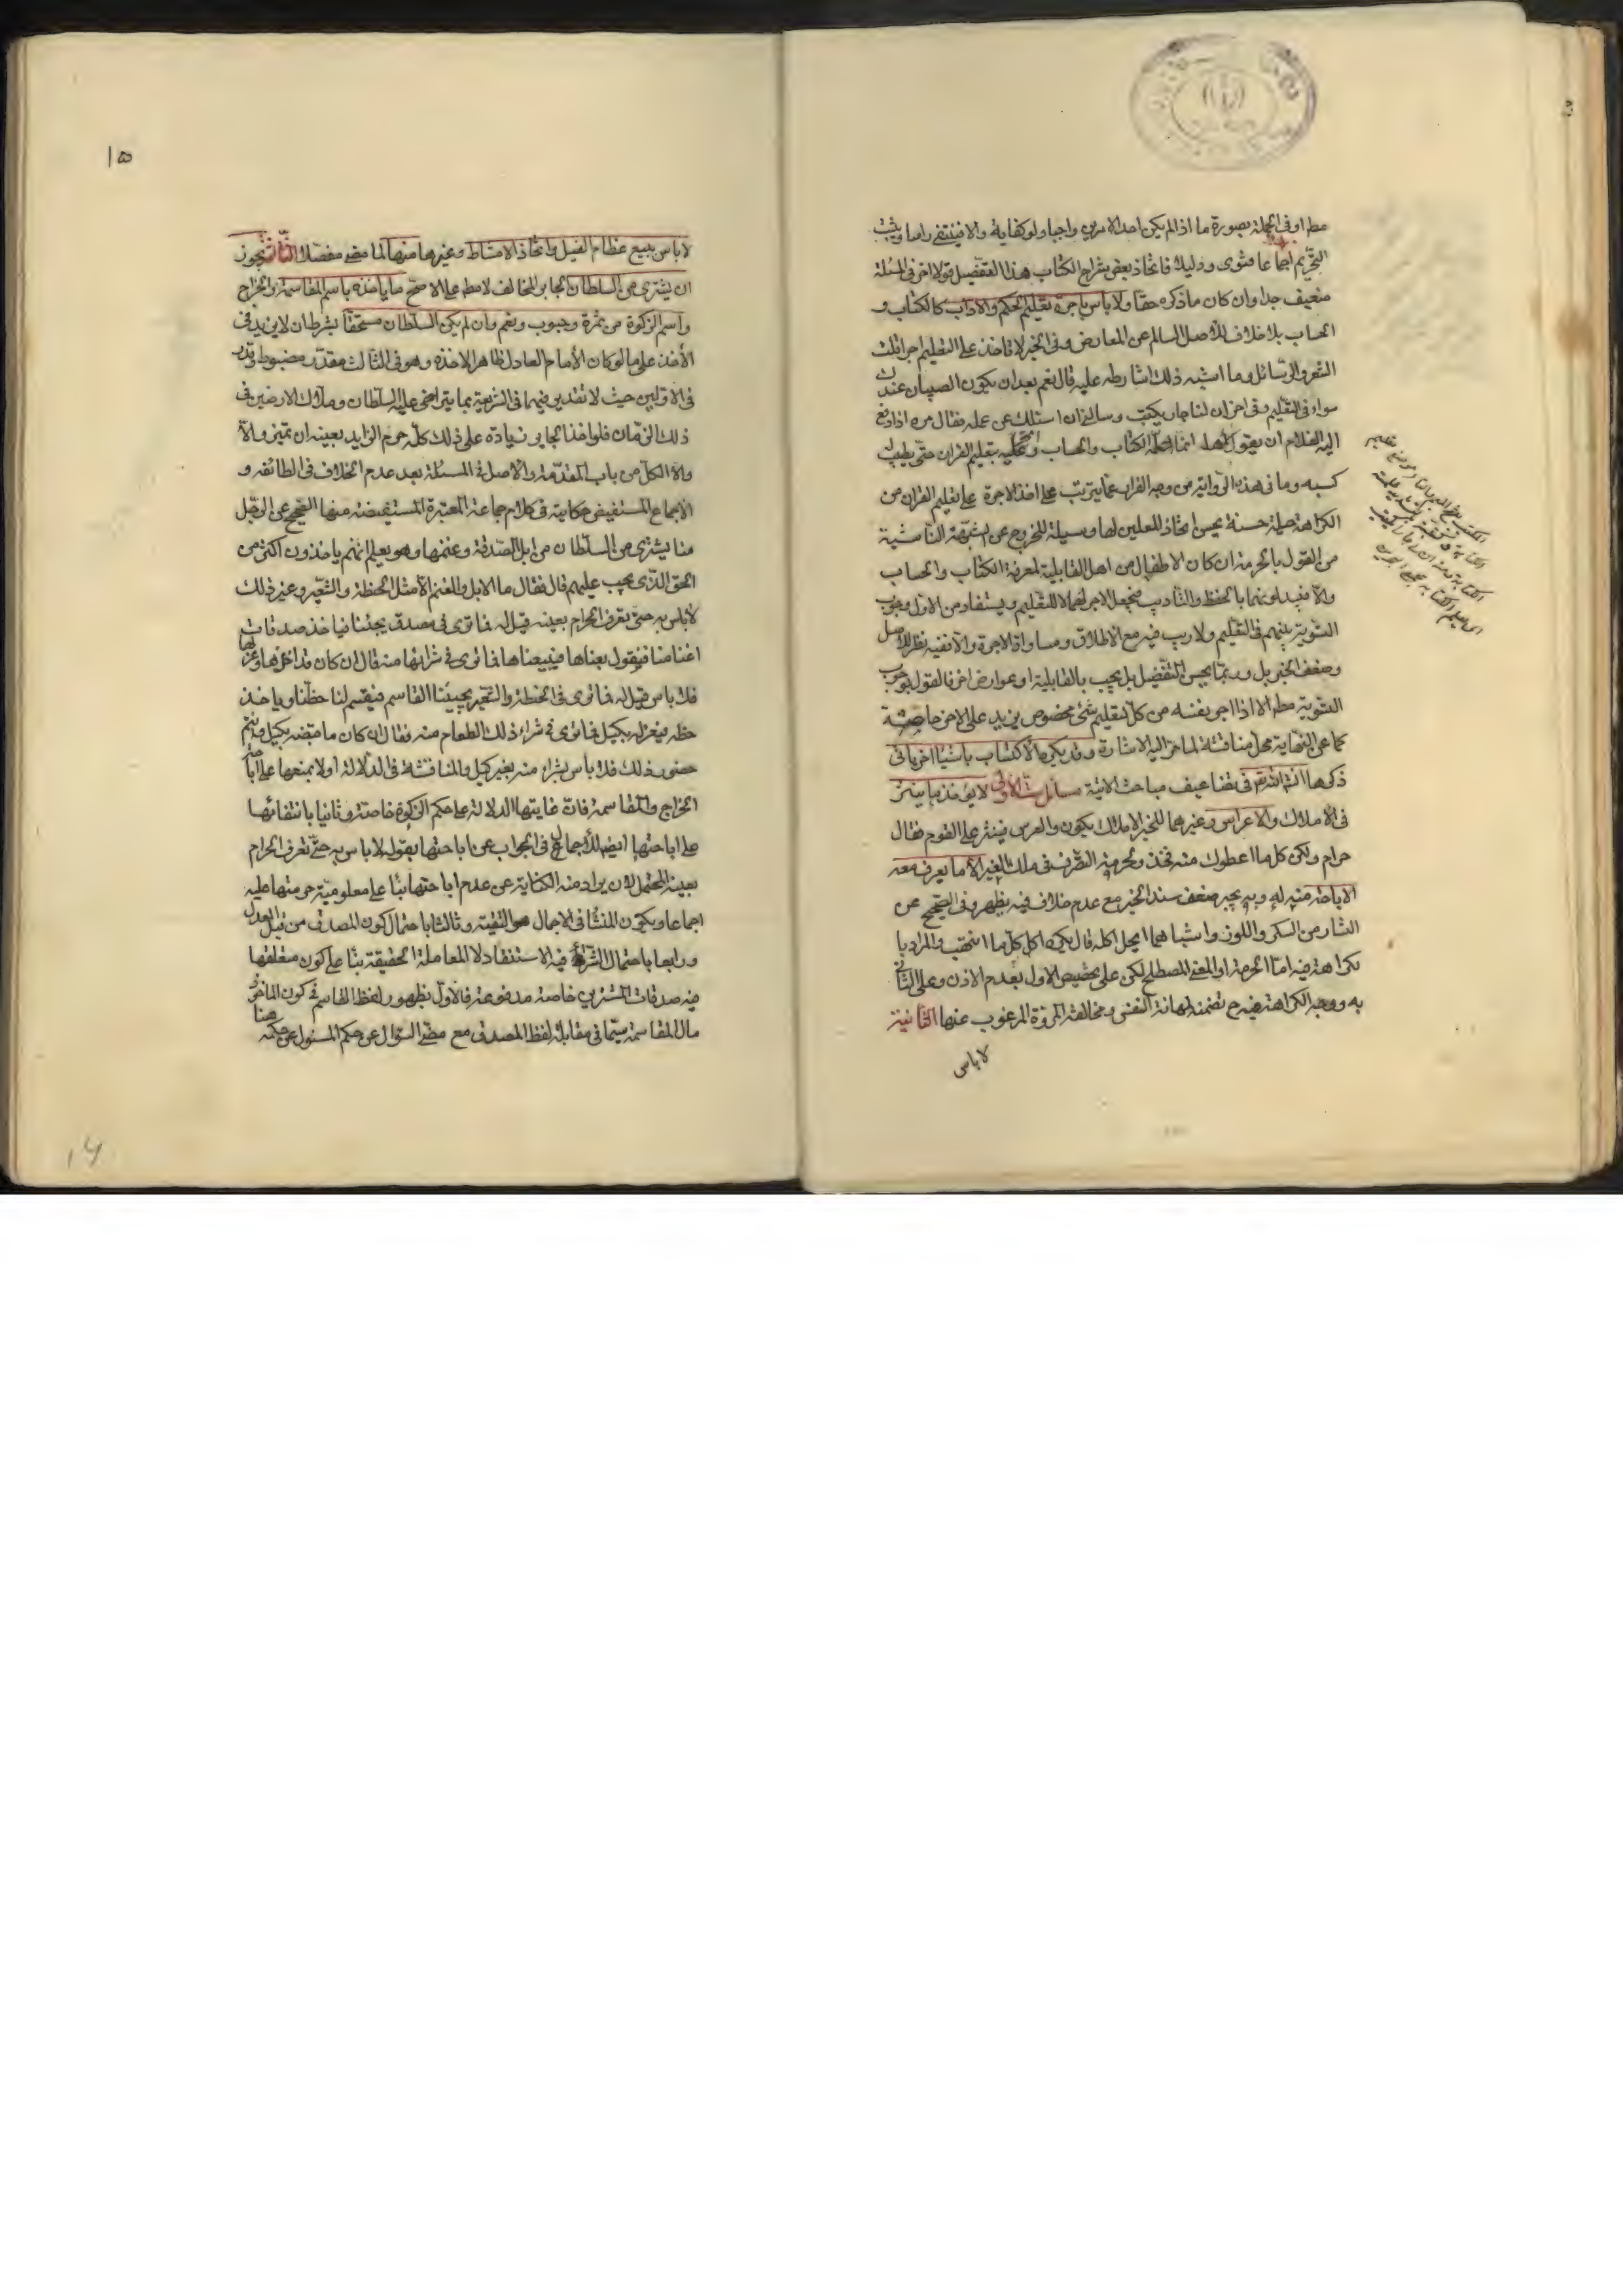 مطم او فى الجملة بصورة ما اذا لم يكن احد الامرين واجبا ولو كفاية والا فينتفى راسا ويثبت
التحريم اجماعا فتوى ودليلا فاتخاذ بعض شراح الكتاب هذا التفصيل قولا اخر فى المسئلة
ضعيف جدا وان كان ما ذكره حقا ولا باس باجرة تعليم الحكم والاداب كالكتاب و
الحساب بلا خلاف للاصل السالم عن المعارض وفى الخبر لا تاخذ على التعليم اجرا قلت
الشعر والرسائل وما اشبه ذلك اشارطه عليه قال نعم بعد ان يكون الصبيان عندك
سواء فى التعليم وفى اخر ان لنا جار يكتب وسالنى ان اسئلك عن عمله فقال مره اذا دفع
اليه الغلام ان يقول لاهله انما اعلمه الكتاب والحساب و عليه بتعليم القران حتى يطيب له
كسبه وما فى هذه الرواية من وجه الفرار عما يترتب على اخذ الاجرة على تعليم القران من
الكراهة حيلة حسنة يحسن اتخاذ المعلمين لها وسيلة للخروج عن الناشية
من القول بالحرمة ان كان الاطفال من اهل القابلية لمعرفة الكتاب والحساب
والا فيبدلونهما بالحفظ والتاديب فيجعل الاجر لهما لا للتعليم ويستفاد من الاول وجوب
التسوية بينهم فى التعليم ولا ريب فيه مع الاطلاق ومساواة الاجرة والا ففيه نظر للاصل
وضعف الخبر بل وربما يحسن التفضيل بل يجب بالقابلية او بعوارض اخر فالقول بوجوب
التسوية مطم الا اذا اجر نفسه من كل لتعليم شئ مخصوص يزيد على الاخر خاصة
كما عن النهاية محل مناقشة لما مر اليه الاشارة وقد يكره الاكتساب باشياء اخر ياتى
ذكرها انشاء الله تم فى تضاعيف مباحث الاتية مسائل ست الاولى لا يؤخذ ما ينثر
فى الاملاك والاعراس وغيرهما للخبر الاملاك يكون والعرس فينثر على القوم فقال
حرام ولكن كل ما اعطوك منه فخذ ولحرمة التصرف فى ملك الغير الا ما يعرف معه
الاباحة منه له وبه يجبر ضعف سند الخبر مع عدم خلاف فيه يظهر وفى الصحيح عن
النثار من السكر واللوز واشباههما ايحل اكله قال يكره اكل كل ما انتهب والمراد با
لكراهة فيه اما الحرمة او المعنى المصطلح لكن على تخصيص الاول بعدم الاذن وعلى الثانى
به ووجه الكراهة فيه ح تضمنه لمهانة النفس ومخالفة المروة المرغوب عنها الثانية
لا باس
١٥
لا باس ببيع عظام الفيل واتخاذ الامشاط وغيرها منها لما مضى مفصلا الثالثة يجوز
ان يشترى من السلطان الجابر المخالف لا مطم على الاصح ما ياخذه باسم المقاسمة والخراج
واسم الزكوة من ثمرة وحبوب ونعم وان لم يكن السلطان مستحقا بشرط ان لا يزيد فى
الاخذ على ما لو كان الامام العادل ظاهرا لاخذه وهو فى الثالث مقدر مضبوط وقدر
فى الاولين حيث لا تقدير فيهما فى الشريعة بما يتراضى عليه السلطان وملاك الارضين فى
ذلك الزمان فلو اخذ الجابر زيادة على ذلك كله حرم الزايد بعينه ان تميز والا
والا الكل من باب المقدمة والاصل فى المسئلة بعد عدم الخلاف فى الطائفه و
الاجماع المستفيض حكاية فى كلام جماعة المعتبرة المستفيضة منها الصحيح عن الرجل
منا يشترى من السلطان من ابل الصدقة وغنمها وهو يعلم انهم ياخذون اكثر من
الحق الذى يجب عليهم قال فقال ما الابل والغنم الا مثل الحنطة والشعير وغير ذلك
لا باس به حتى تعرف الحرام بعينه قيل له فما ترى فى مصدق يجئنا فياخذ صدقات
اغنامنا فنقول بعناها فيبيعناها فما ترى فى شرائها منه قال ان كان قد اخذها وعزلها
فلا باس قيل له فما ترى فى الحنطة والشعير يجيئنا القاسم فيقسم لنا حظنا وياخذ
حظه فيعزله بكيل فما ترى فى شراء ذلك الطعام منه فقال ان كان ما قبضه بكيل وانتم
حضور ذلك فلا باس بشراء منه بغير كيل والمناقشة فى الدلالة اولا بمنعها على اباحة
الخراج والمقاسمة فان غايتها الدلالة على حكم الزكوة خاصة وثانيا بانتفائها
على اباحتها ايضا للاجمال فى الجواب عن اباحتها بقوله لا باس به حتى تعرف الحرام
بعينه المحتمل لان يراد منه الكناية عن عدم اباحتها بناء على معلومية حرمتها عليه
اجماعا ويكون المنشا فى الاجمال هو التقية وثالثا باحتمال كون المصدق من قبل العدل
ورابعا باحتمال الشراء فيه الاستنقاذ لا المعاملة الحقيقة بناء على كون متعلقها
فيه صدقات المشترين خاصة مدفوعة فالاول بظهور لفظ القاسم فى كون الماخوذ
مال المقاسمة سيما فى مقابلة لفظ المصدق مع مضى السؤال عن حكم المسئول عن حكمه هنا